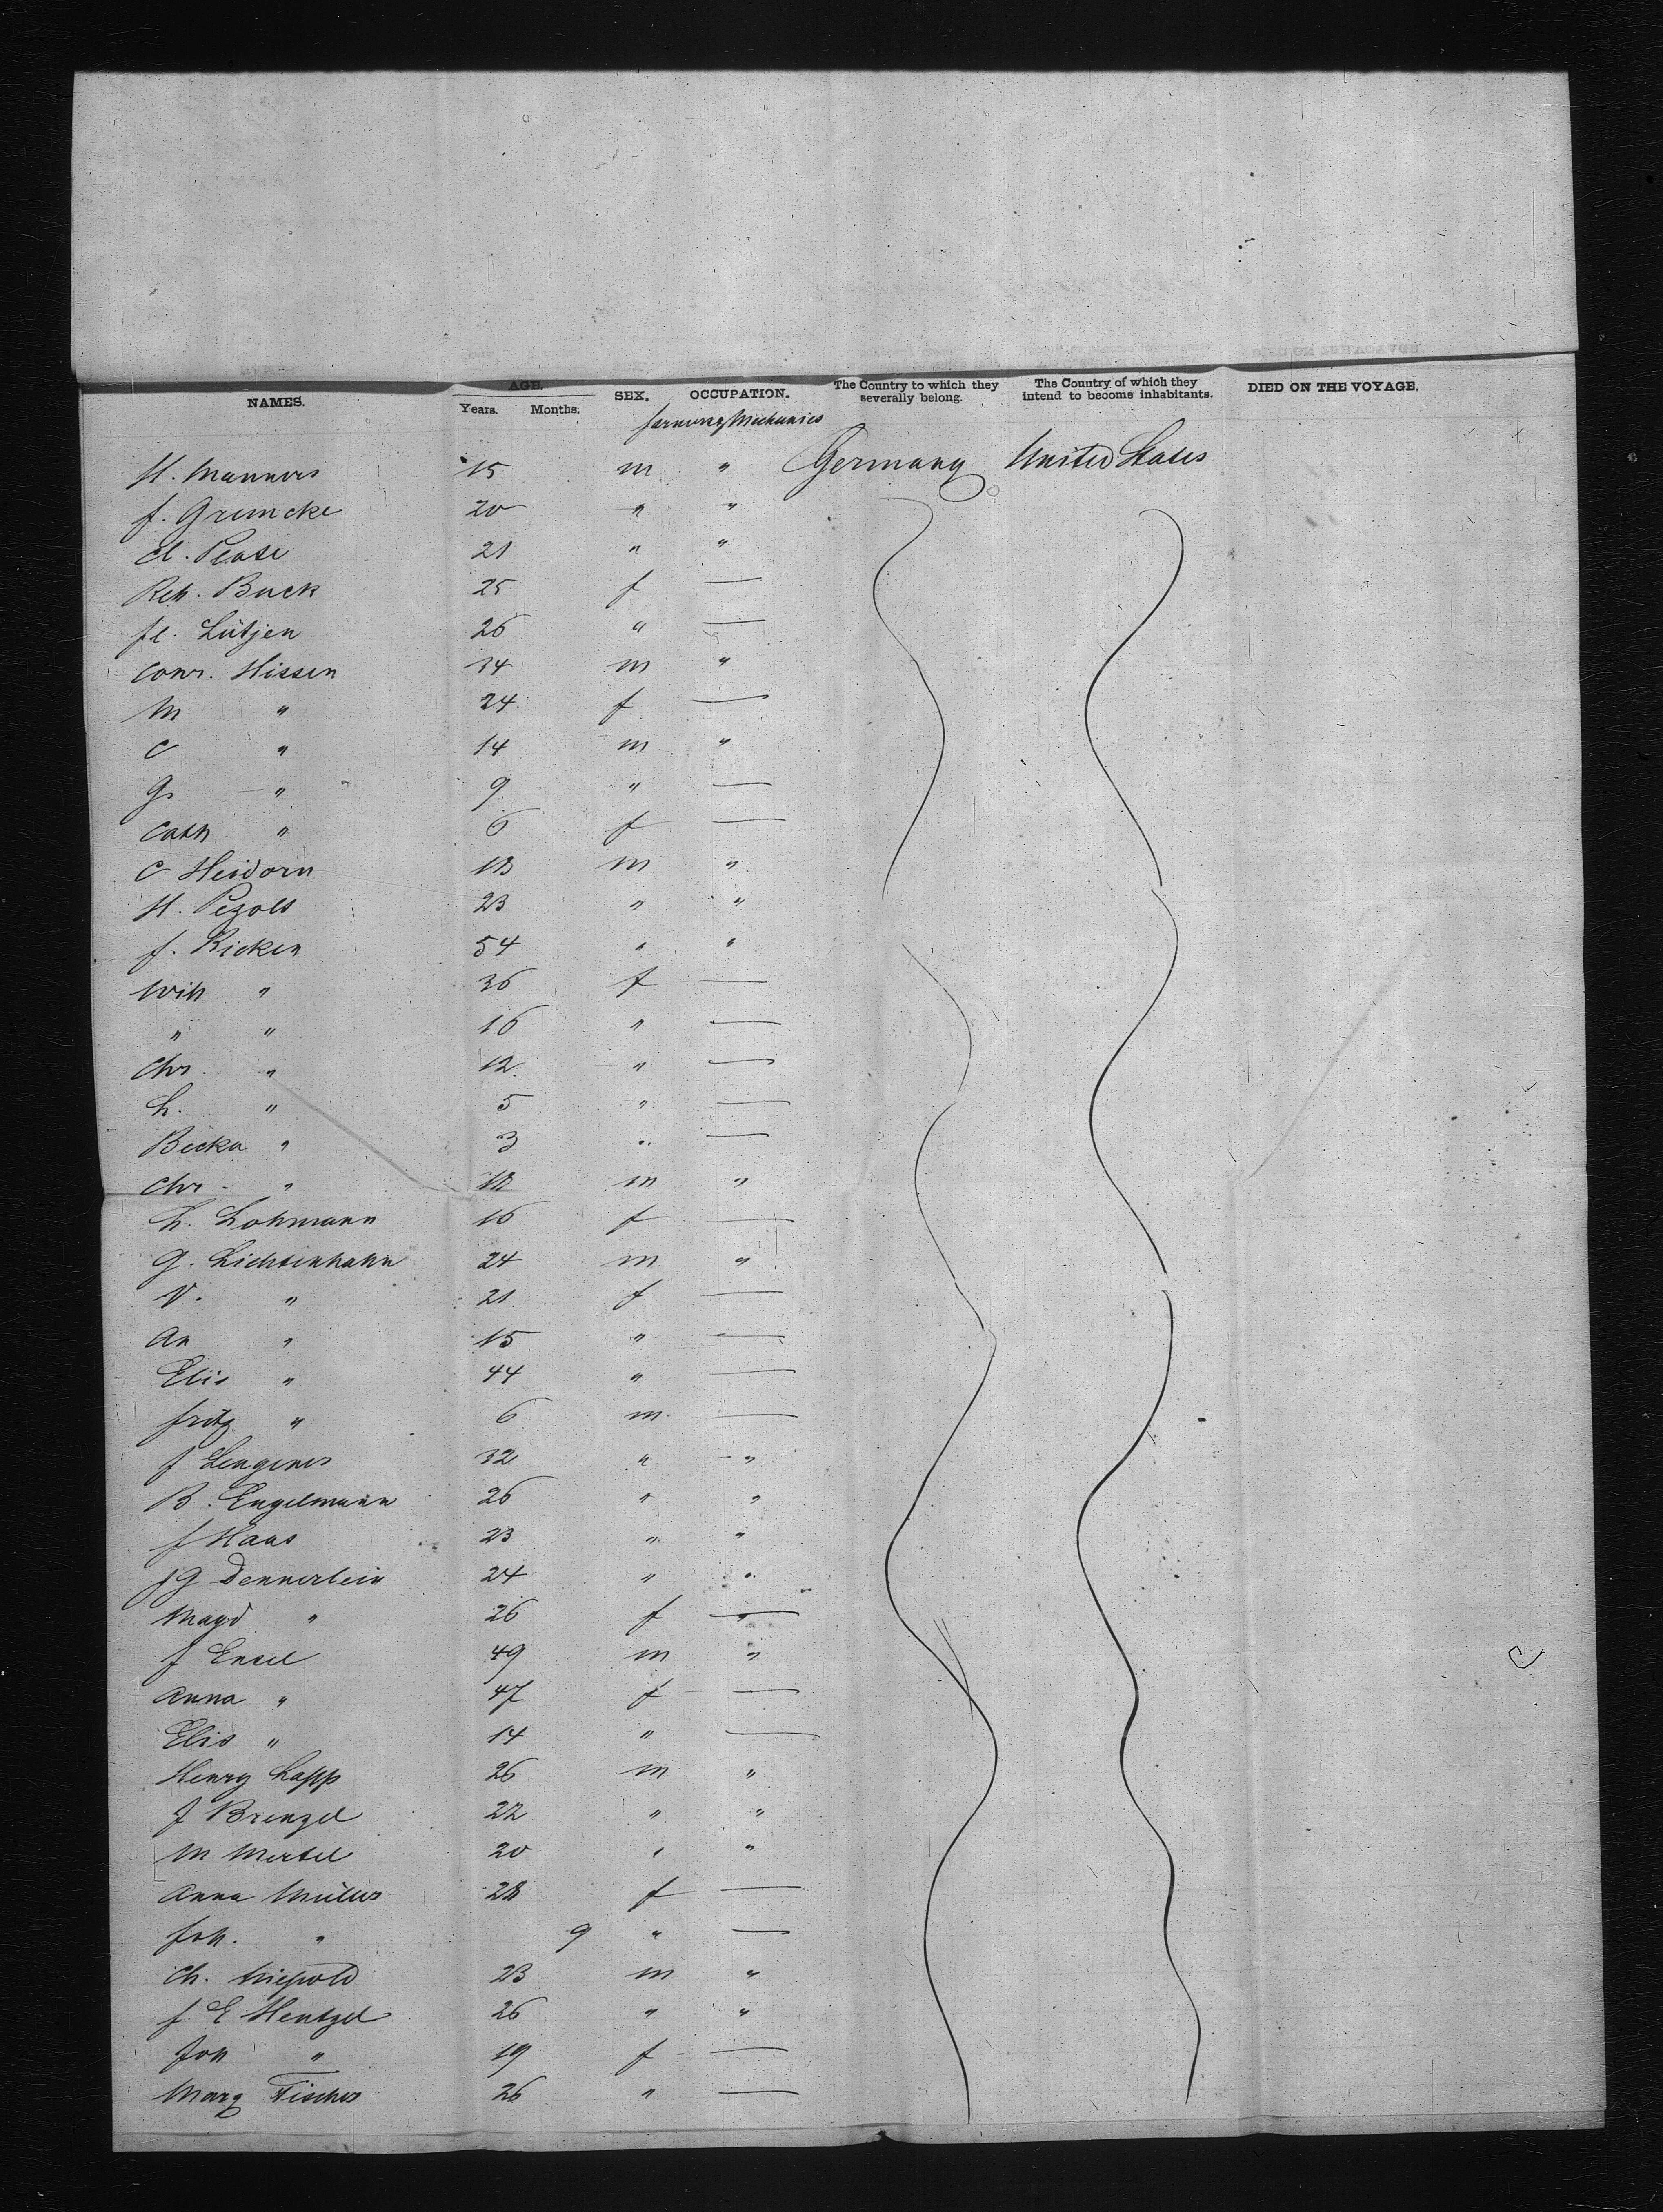 NAMES. AGE. SEX. OCCUPATION. The Country to which they severally belong. The Country of which they intend to become inhabitants. DIED ON THE VOYAGE.
Years. Months.
farmers & Mechanics
H. Manners 15 m " Germany United States
f. Gremcke 20 " "
Cl. 21 " "
Reb. Buck 25 f —
fl. Lütjen 26 " —
Conr. Hissen 34 m "
M " 24 f —
C " 14 m "
G. — " 9 " —
Cath " 6 f —
C Heidorn 18 m "
H. Pezolt 23 " "
f. Ricken 54 " "
Wilh " 36 f —
" " 16 " —
Chr. " 12 " —
L. " 5 " —
Becka " 3 " —
Chr. " m "
L. Lohmann 16 f —
G. Lichtenhahn 24 m "
V. " 21 f —
An " 15 " —
Elis " 44 " —
fritz " 6 m —
J 32 " "
B. Engelmann 26 " "
f Haas 23 " "
J G Dennerlein 24 " "
Magd " 26 f —
J Ensel 49 m "
Anna " 47 f —
Elis " 14 " —
Henry Lapp 26 m "
J Brengel 22 " "
M Mertel 20 " "
Anna Müller 28 f —
Joh. " 9 " —
Ch. 23 m "
f. E Hentzel 26 " "
Joh " 19 f —
Marg Fischer 26 " —